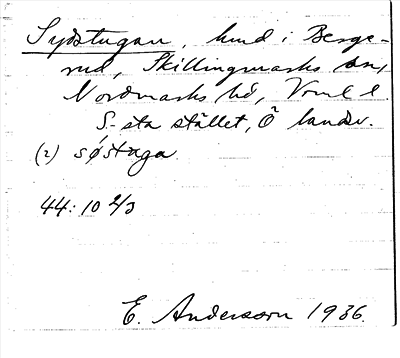 Sydstugan, hmd i Berge-
rud, Skillingmarks sn,
Nordmarks hd, Vrml l.
S.-sta stället, Ö landsv.
(2) søstuga
44:10 2/3
E. Andersson 1936.